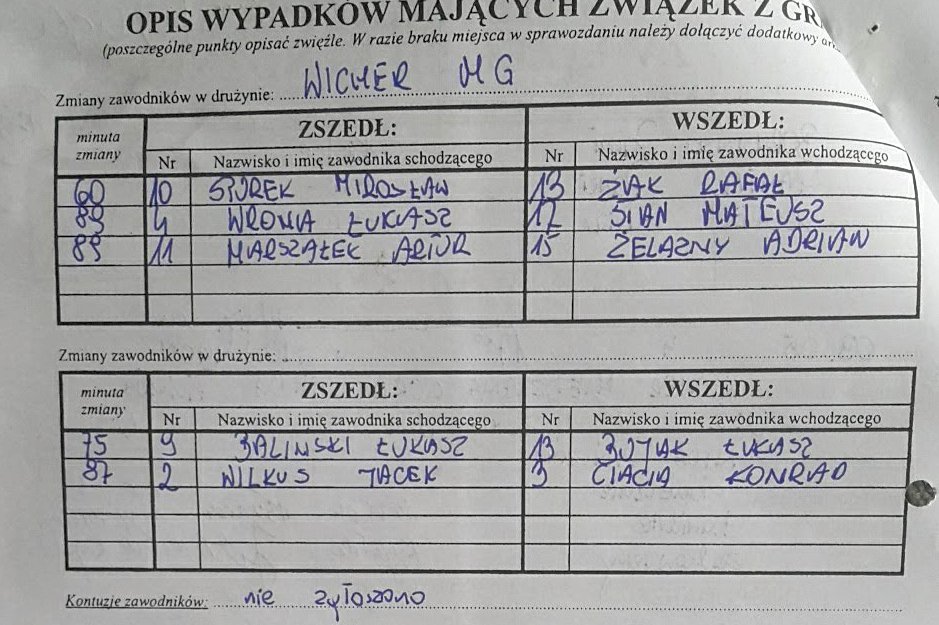 OPIS WYPADKÓW MAJĄCYCH ZWIĄZEK Z
(poszczególne punkty opisać zwięźle. W razie braku miejsca w sprawozdaniu należy dołączyć dodatkowy
Zmiany zawodników w drużynie: WICHER MG
minuta zmiany ZSZEDŁ: WSZEDŁ:
Nr Nazwisko i imię zawodnika schodzącego Nr Nazwisko i imię zawodnika wchodzącego
60 10 MIROSŁAW 13 ŻAK RAFAŁ
89 4 WRONA ŁUKASZ 12 MATEUSZ
89 11 MARSZAŁEK ARTUR 15 ŻELAZNY ADRIAN
Zmiany zawodników w drużynie:
minuta zmiany ZSZEDŁ: WSZEDŁ:
Nr Nazwisko i imię zawodnika schodzącego Nr Nazwisko i imię zawodnika wchodzącego
75 9 BALINSKI ŁUKASZ 13 BUJAK ŁUKASZ
87 2 WILKUS JACEK 3 KONRAD
Kontuzje zawodników: nie zgłoszono